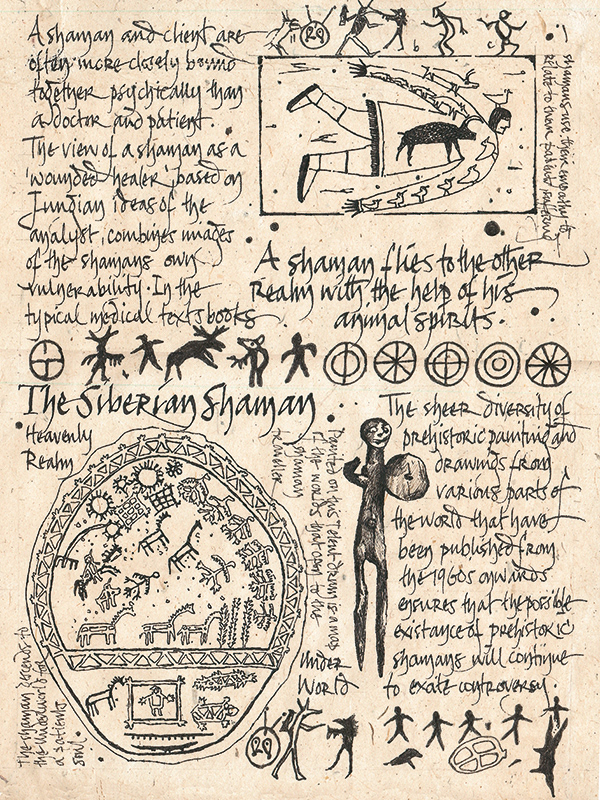 A shaman and client are
often more closely bound
together psychically than
a doctor and patient.
The view of a shaman as a
'wounded healer', based on
Jungian ideas of the
analyst, combines images
of the shamans own
vulnerability. In the
typical medical texts books
shamans use their empathy to
relate to their patients suffering
A shaman flies to the other
Realm with the help of his
animal spirits.
The Siberian Shaman
Heavenly
Realm
Painted on this Teleut drum is a map
of the worlds that open to the
shaman
traveller
Under
World
The shaman descends to
the underworld for
a patients
soul.
The sheer diversity of
prehistoric painting and
drawings from
various parts of
the world that have
been published from
the 1960s onwards
ensures that the possible
existance of prehistoric
shamans will continue
to exate controversy.